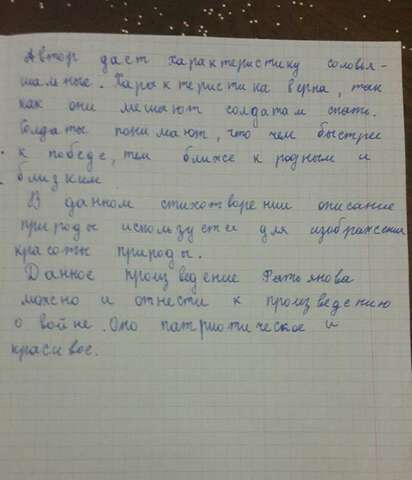 Автор дает характеристику соловья-
шальные. Характеристика верна, так
как они мешают солдатам спать.
Солдаты понимают, что чем быстрее
к победе, тем ближе к родным и
близким.
В данном стихотворении описание
природы используется для изображения
красоты природы.
Данное произведение Фатьянова
можно и отнести к произведению
о войне. Оно патриотическое и
красивое.